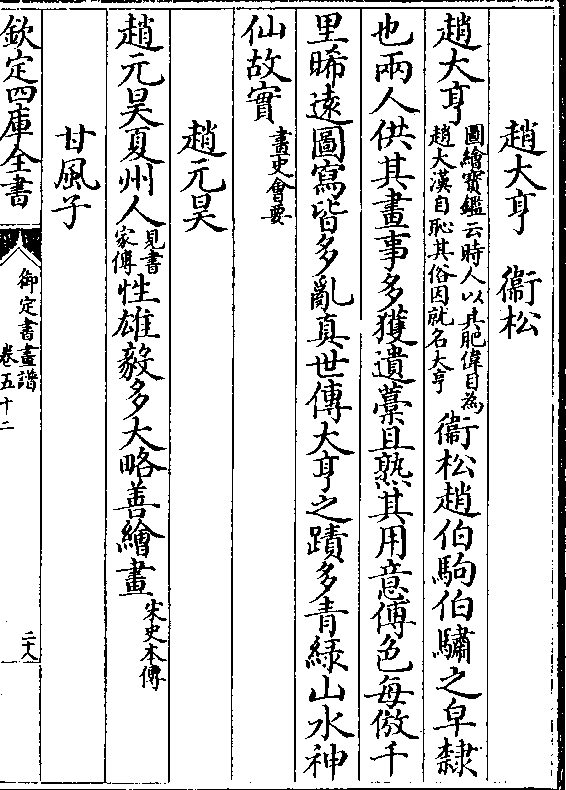 趙大亨　衞松
趙大亨圖繪寳鑑云時人以其肥偉目為趙大漢自恥其俗因就名大亨衞松趙伯駒伯驌之皁隸
也兩人供其畫事多獲遺藁且熟其用意傅色每倣千
里晞遠圖寫皆多亂真世傳大亨之蹟多青緑山水神
仙故實畫史會要
趙元昊
趙元昊夏州人見書家傳性雄毅多大略善繪畫宋史本傳
甘風子
欽定四庫全書
御定書畫譜
卷五十二
二八